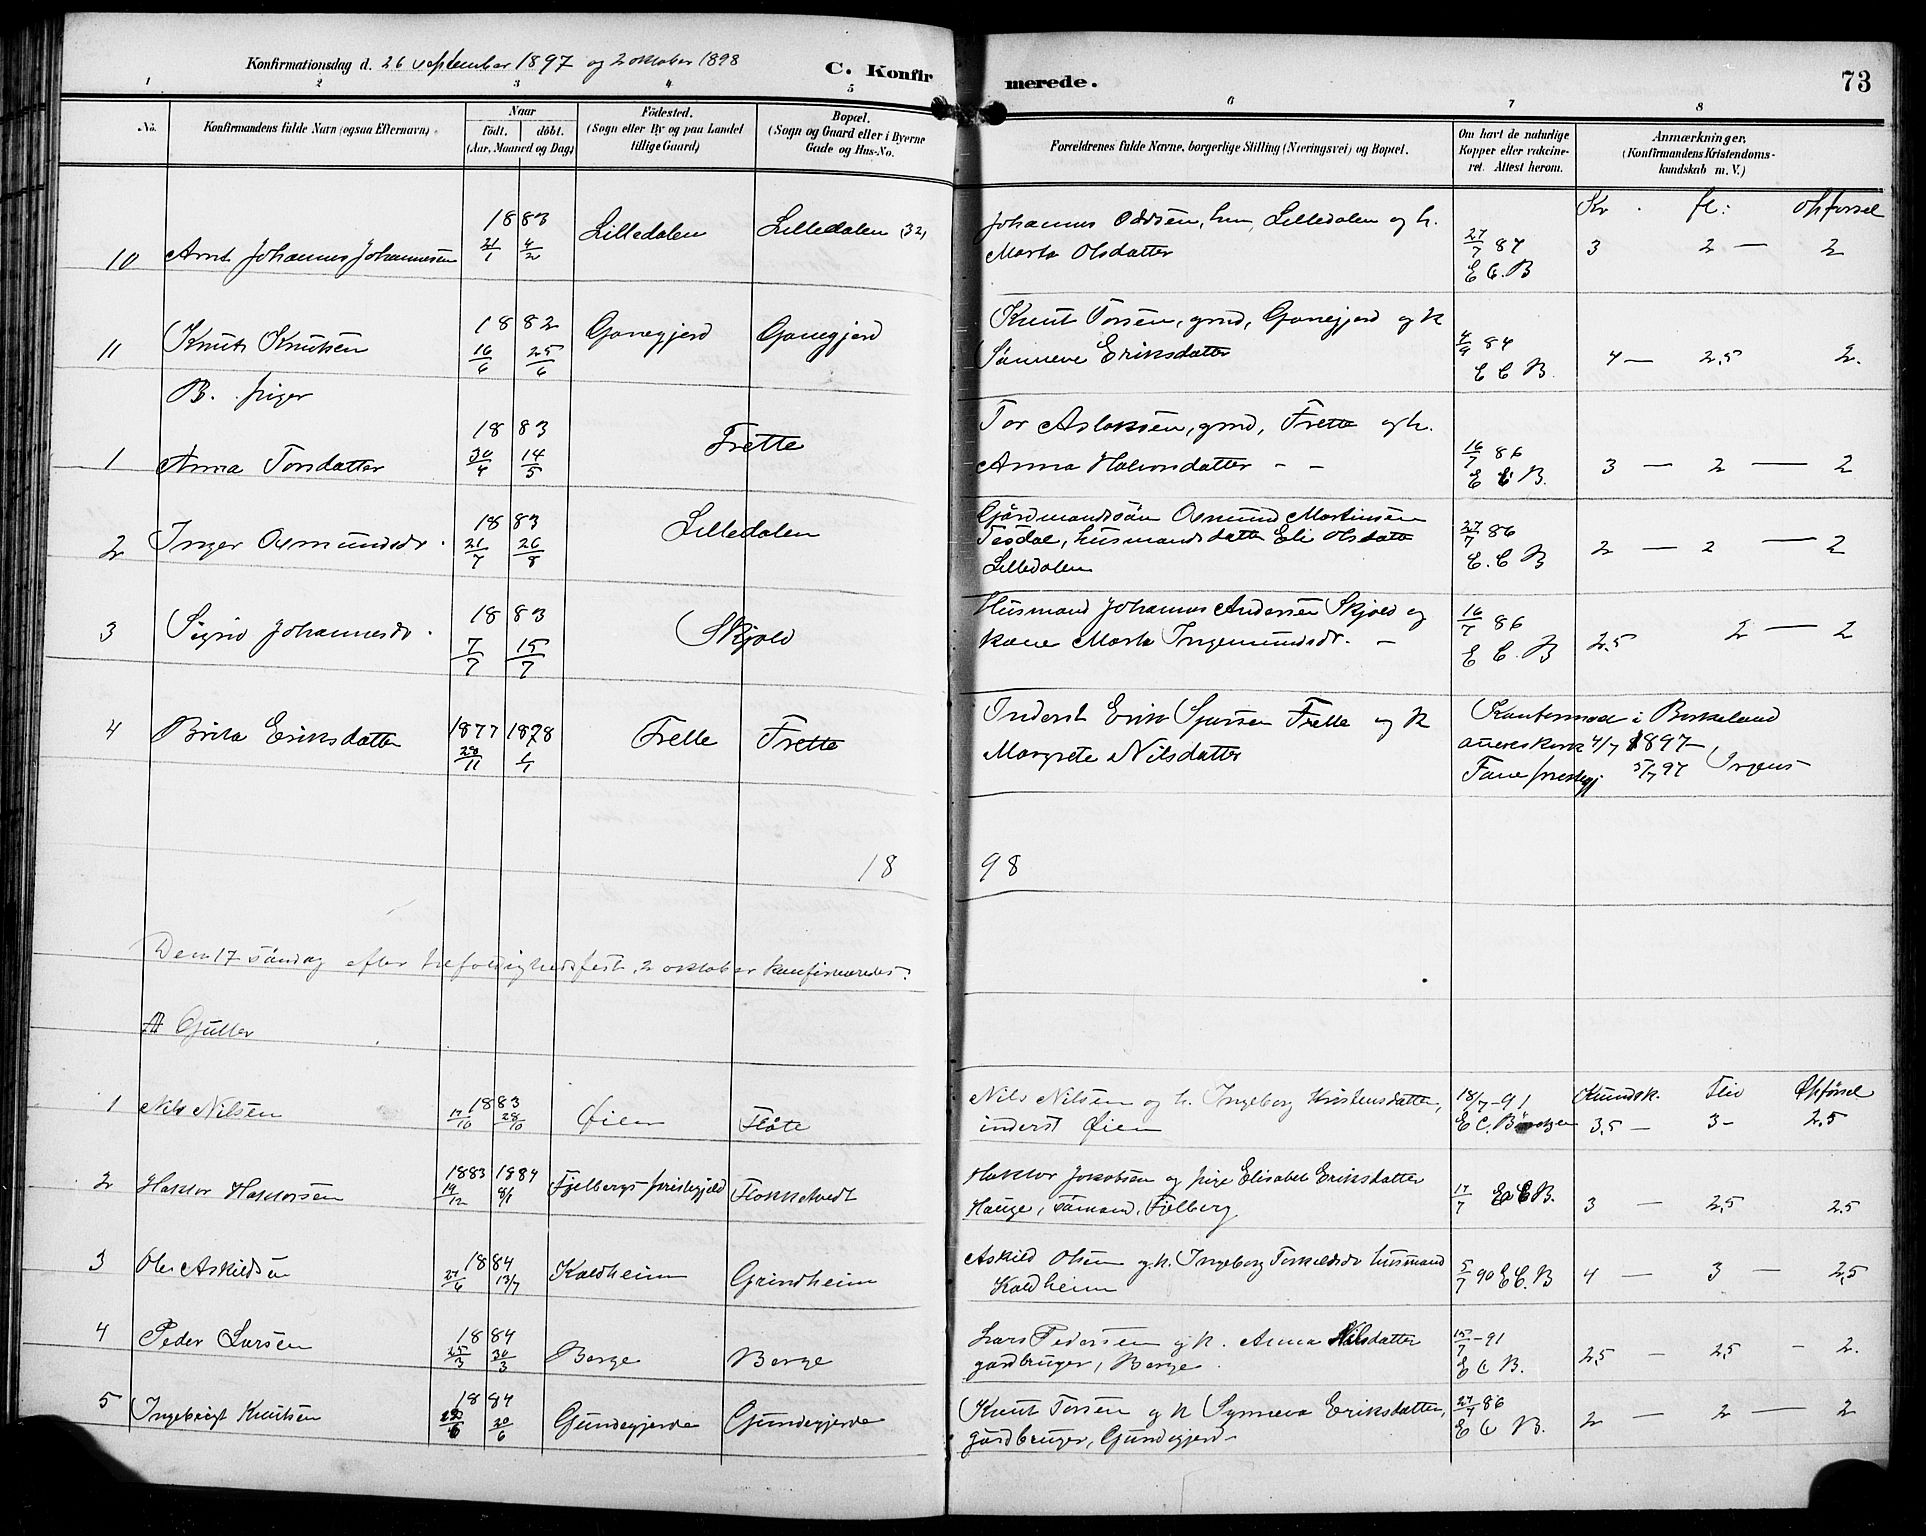 Konfirmationsdag d. 26 september 1897 og 2 oktober 1898
C. Konfir merede.
73
1 2 3 4 5 6 7 8
No.
Konfirmandens fulde Navn (ogsaa Efternavn)
Naar
födt. döbt.
(Aar, Maaned og Dag)
Födested.
(Sogn eller By og paa Landet
tillige Gaard)
Bopæl.
(Sogn og Gaard eller i Byerne
Gade og Hus-No.
Forældrenes fulde Navne, borgerlige Stilling (Næringsvei) og Bopæl.
Om havt de naturlige
Kopper eller vakcine-
ret. Attest herom.
Anmærkninger.
(Konfirmandens Kristendoms-
kundskab m. V.)
Kr. fl: Opførsel
10 Arnt Johannes Johannesen 1883 21/1 4/2 Lilledalen Lilledalen (32)
Johannes Oddsen, hm, Lilledalen og h.
Marta Olsdatter 27/7 87 E C. B 3 2 — 2
11 Knut Knutsen 1882 16/6 25/6 Gonegjerd Gonegjerd
Knut Torsen, grd, Gonegjerd og k
Sønneve Eriksdatter 4/9 84 E C B. 4 — 2,5 2.
B. piger
1 Anna Torsdatter 1883 30/4 14/5 Frette
Tor Aslaksen, grd, Frette og h.
Anna Halvorsdatter - - 16/7 86 E C B. 3 — 2 — 2
2 Inger Osmundsdr. 1883 21/7 26/8 Lilledalen
Gårdmandssøn Osmund Martinsen
Tesdal, husmandsdatter Eli Olsdatter
Lilledalen 27/7 86 E. C B 2 — 2 — 2
3 Sigrid Johannesdr. 1883 7/7 15/7 Skjold
Husmand Johannes Andersen Skjold og
kone Marta Ingemundsdr. - 16/7 86 E C. B 2,5 2 — 2
4 Brita Eriksdatter 1877 28/11 1878 1/1 Frette Frette
Inderst Erik Sjursen Frette og k
Margrete Nilsdatter
i Birkeland
4/7 1897 —
Fane prestegj 5/7 97 Irgens
18 98
Den 17 söndag efter trefoldighedsfest, 2 oktober konfirmeredes:
A Gutter
1 Nils Nilsen 1883 17/10 28/10 Øien Fløte
Nils Nilsen og h. Ingeborg Kristensdatter,
inderst Øien 18/7-91 E C.
Kundsk. Flid Opførsel
3,5 — 3 - 2,5
2 Haktor Haktorsen 1883 19/12 1884 8/1 Fjelbergs prestegjeld Flokketvedt
Haktor Jakobsen og pige Elisabet Eriksdatter
Hauge, sømand, Fjelberg 17/7 E C B. 3 — 2,5 2,5
3 Ole Askildsen 1884 27/6 13/7 Koldheim Grindheim
Askild Olsen og k. Ingeborg Torkildsdr husmand
Koldheim 5/7 90 E C. B 4 — 3 — 2,5
4 Peder Larsen 1884 25/3 30/3 Berge Berge
Lars Pedersen og k. Anna Nilsdatter
gårdbruger, Berge. 15/7-91 E C B. 2,5 — 2,5 - 2.
5 Ingebrigt Knutsen 1884 20/6 Gundegjerde Gundegjerde
Knut Torsen og k Synneva Eriksdatter,
gårdbruger, Gundegjerd - 27/7 86 E C B. 2 — 2 — 2